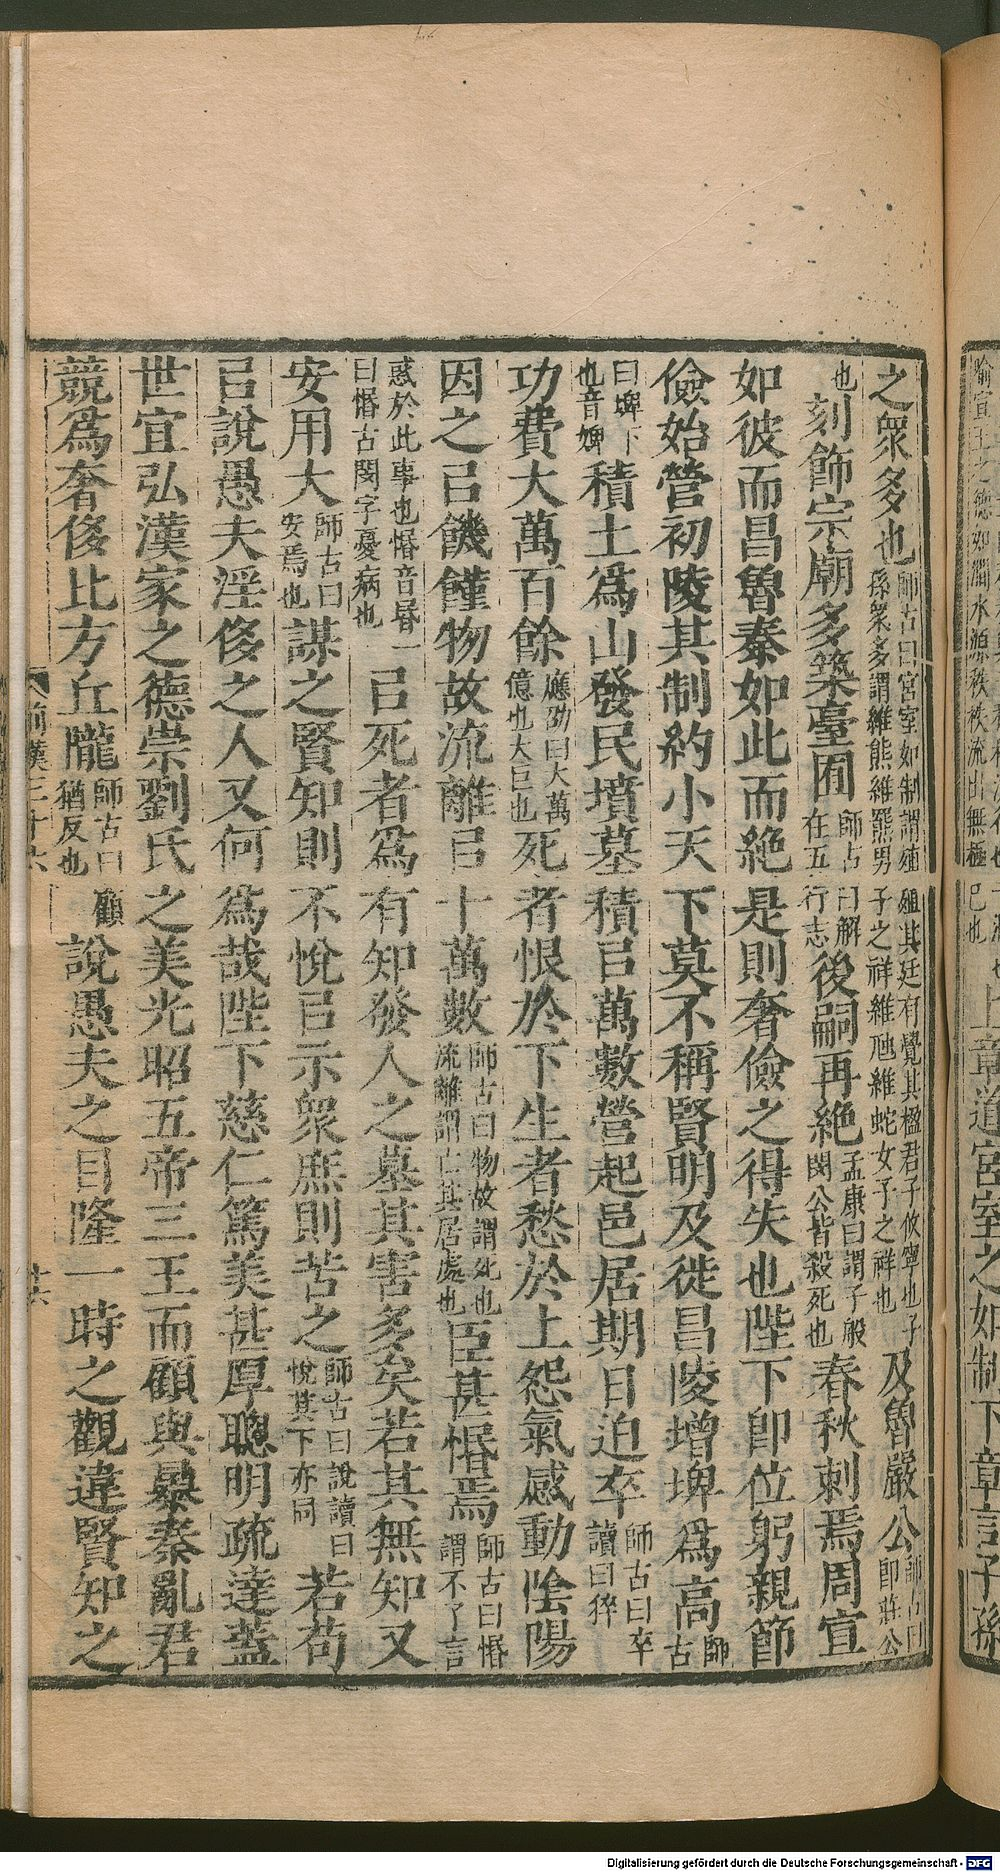 之衆多也師古曰宮室如制謂殖殖其廷有覺其楹君子攸寧也子孫衆多謂維熊維羆男子之祥維虺維蛇女子之祥也及魯嚴公師古曰即莊公
也刻飾宗廟多築臺囿師古曰解在五行志後嗣再絶孟康曰謂子般閔公皆殺死也春秋刺焉周宣
如彼而昌魯秦如此而絶是則奢儉之得失也陛下即位躬親節
儉始營初陵其制約小天下莫不稱賢明及徙昌陵增埤爲高師古
曰埤下也音婢積土爲山發民墳墓積㠯萬數營起邑居期日迫卒師古曰卒讀曰猝
功費大萬百餘應劭曰大萬億也大巨也死者恨於下生者愁於上怨氣感動陰陽
因之㠯饑饉物故流離㠯十萬數師古曰物故謂死也流離謂亡其居處也臣甚惽焉師古曰惽謂不了言
惑於此事也惽音昬一曰惽古閔字憂病也㠯死者爲有知發人之墓其害多矣若其無知又
安用大師古曰安焉也謀之賢知則不悅㠯示衆庶則苦之師古曰說讀曰悅其下亦同若苟
㠯說愚夫淫侈之人又何爲哉陛下慈仁篤美甚厚聰明疏達蓋
世宜弘漢家之德崇劉氏之美光昭五帝三王而顧與暴秦亂君
競爲奢侈比方丘隴師古曰顧猶反也說愚夫之目隆一時之觀違賢知之
前漢三十六
十六
上章道宮室之如制下章言子孫
Digitalisierung gefördert durch die Deutsche Forschungsgemeinschaft - DFG